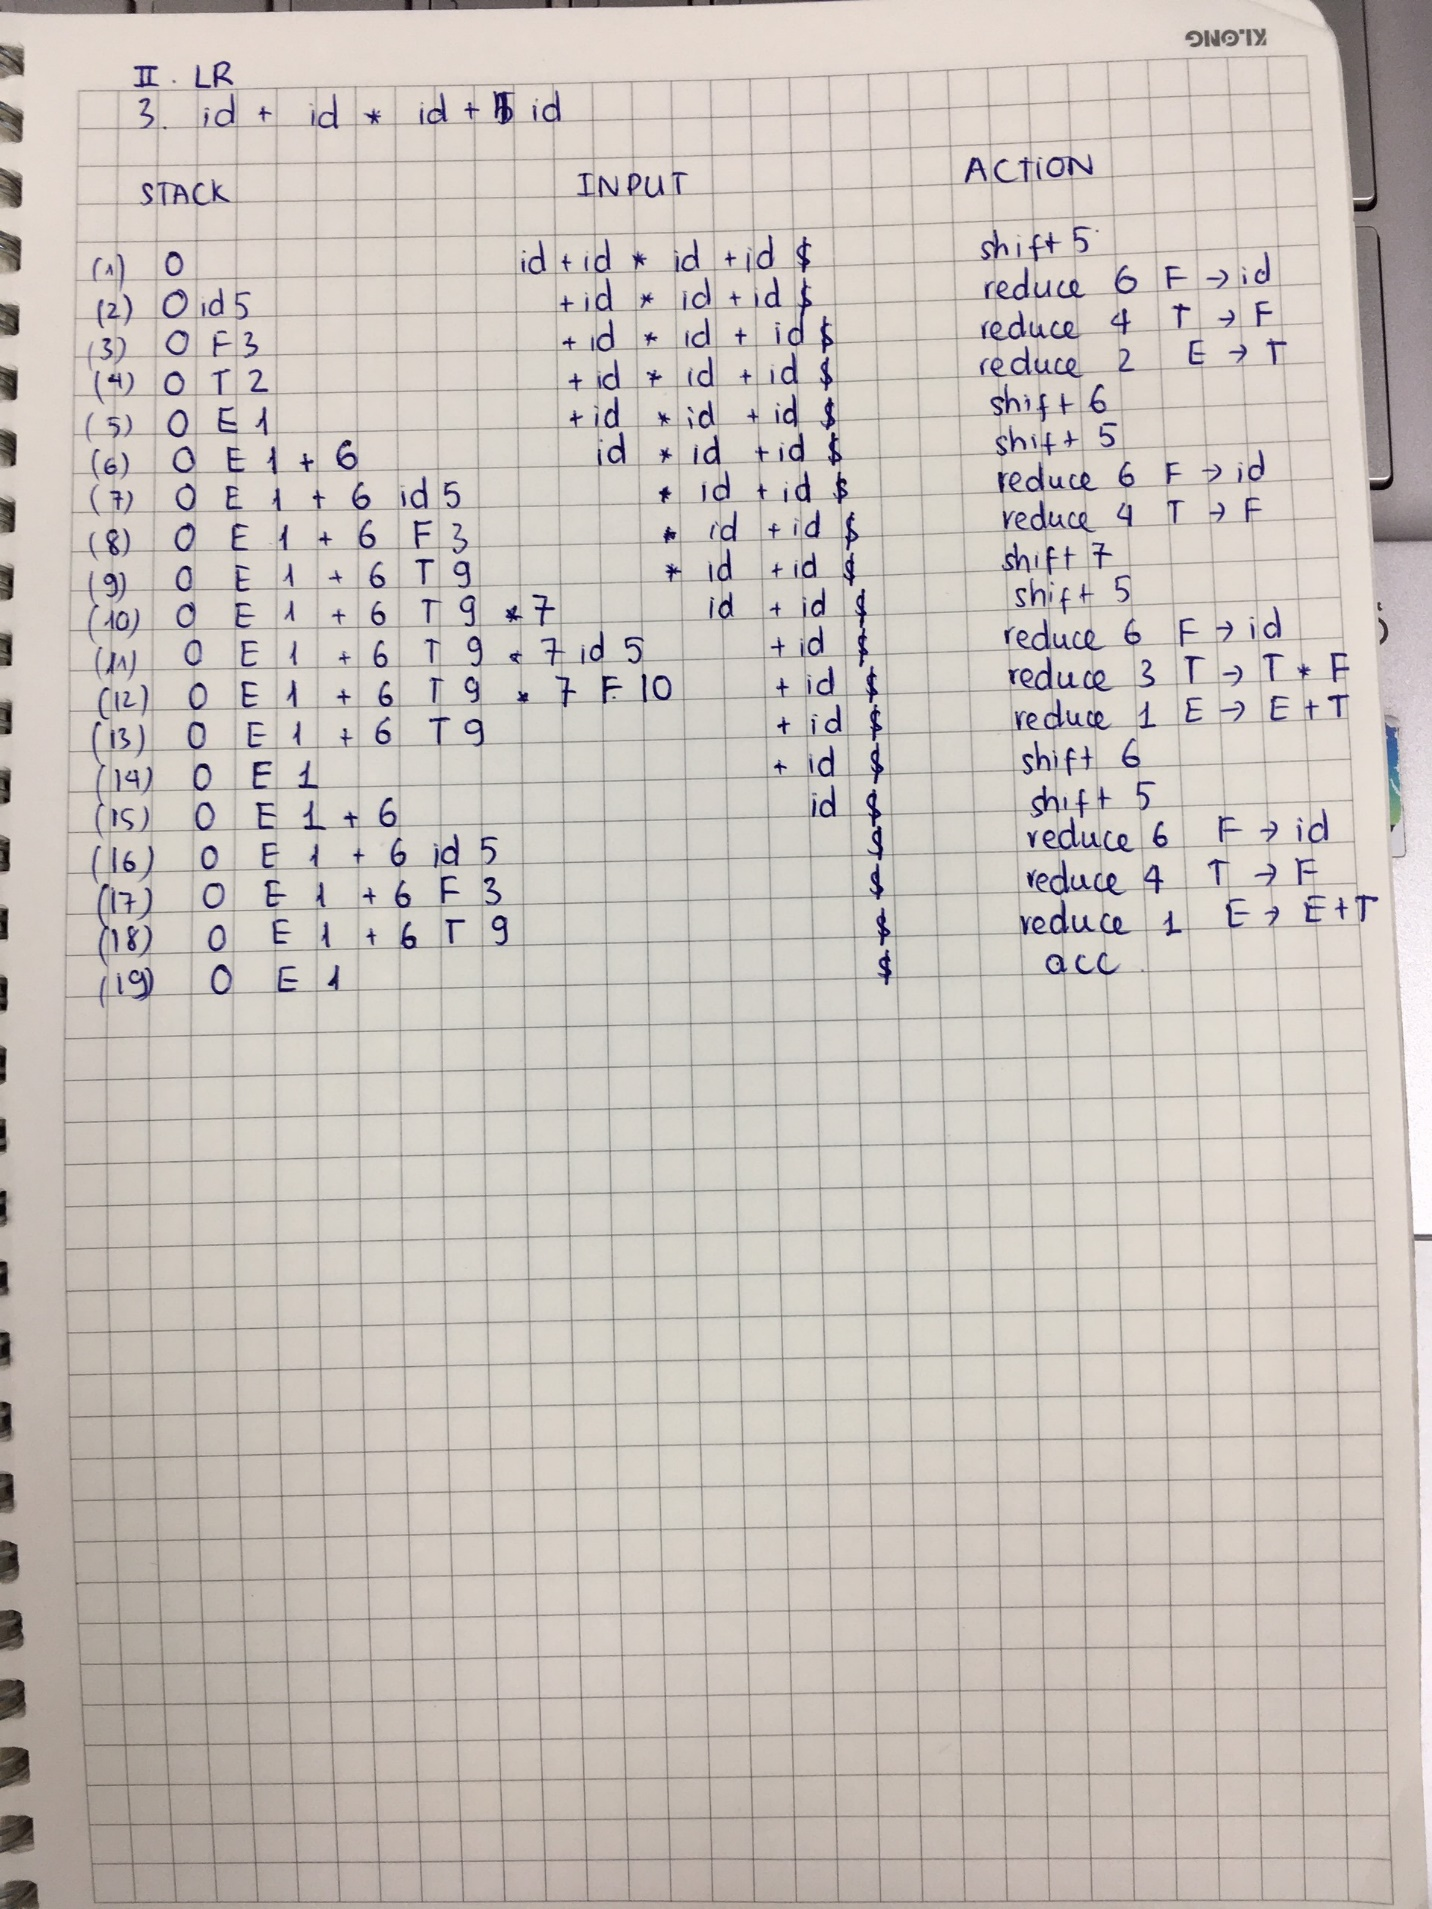 KLONG
II. LR
3. id + id * id + id
STACK INPUT ACTION
(1) 0 id + id * id + id $ shift 5
(2) 0 id 5 + id * id + id $ reduce 6 F → id
(3) 0 F 3 + id * id + id $ reduce 4 T → F
(4) 0 T 2 + id * id + id $ reduce 2 E → T
(5) 0 E 1 + id * id + id $ shift 6
(6) 0 E 1 + 6 id * id + id $ shift 5
(7) 0 E 1 + 6 id 5 * id + id $ reduce 6 F → id
(8) 0 E 1 + 6 F 3 * id + id $ reduce 4 T → F
(9) 0 E 1 + 6 T 9 * id + id $ shift 7
(10) 0 E 1 + 6 T 9 * 7 id + id $ shift 5
(11) 0 E 1 + 6 T 9 * 7 id 5 + id $ reduce 6 F → id
(12) 0 E 1 + 6 T 9 * 7 F 10 + id $ reduce 3 T → T * F
(13) 0 E 1 + 6 T 9 + id $ reduce 1 E → E + T
(14) 0 E 1 + id $ shift 6
(15) 0 E 1 + 6 id $ shift 5
(16) 0 E 1 + 6 id 5 $ reduce 6 F → id
(17) 0 E 1 + 6 F 3 $ reduce 4 T → F
(18) 0 E 1 + 6 T 9 $ reduce 1 E → E + T
(19) 0 E 1 $ acc